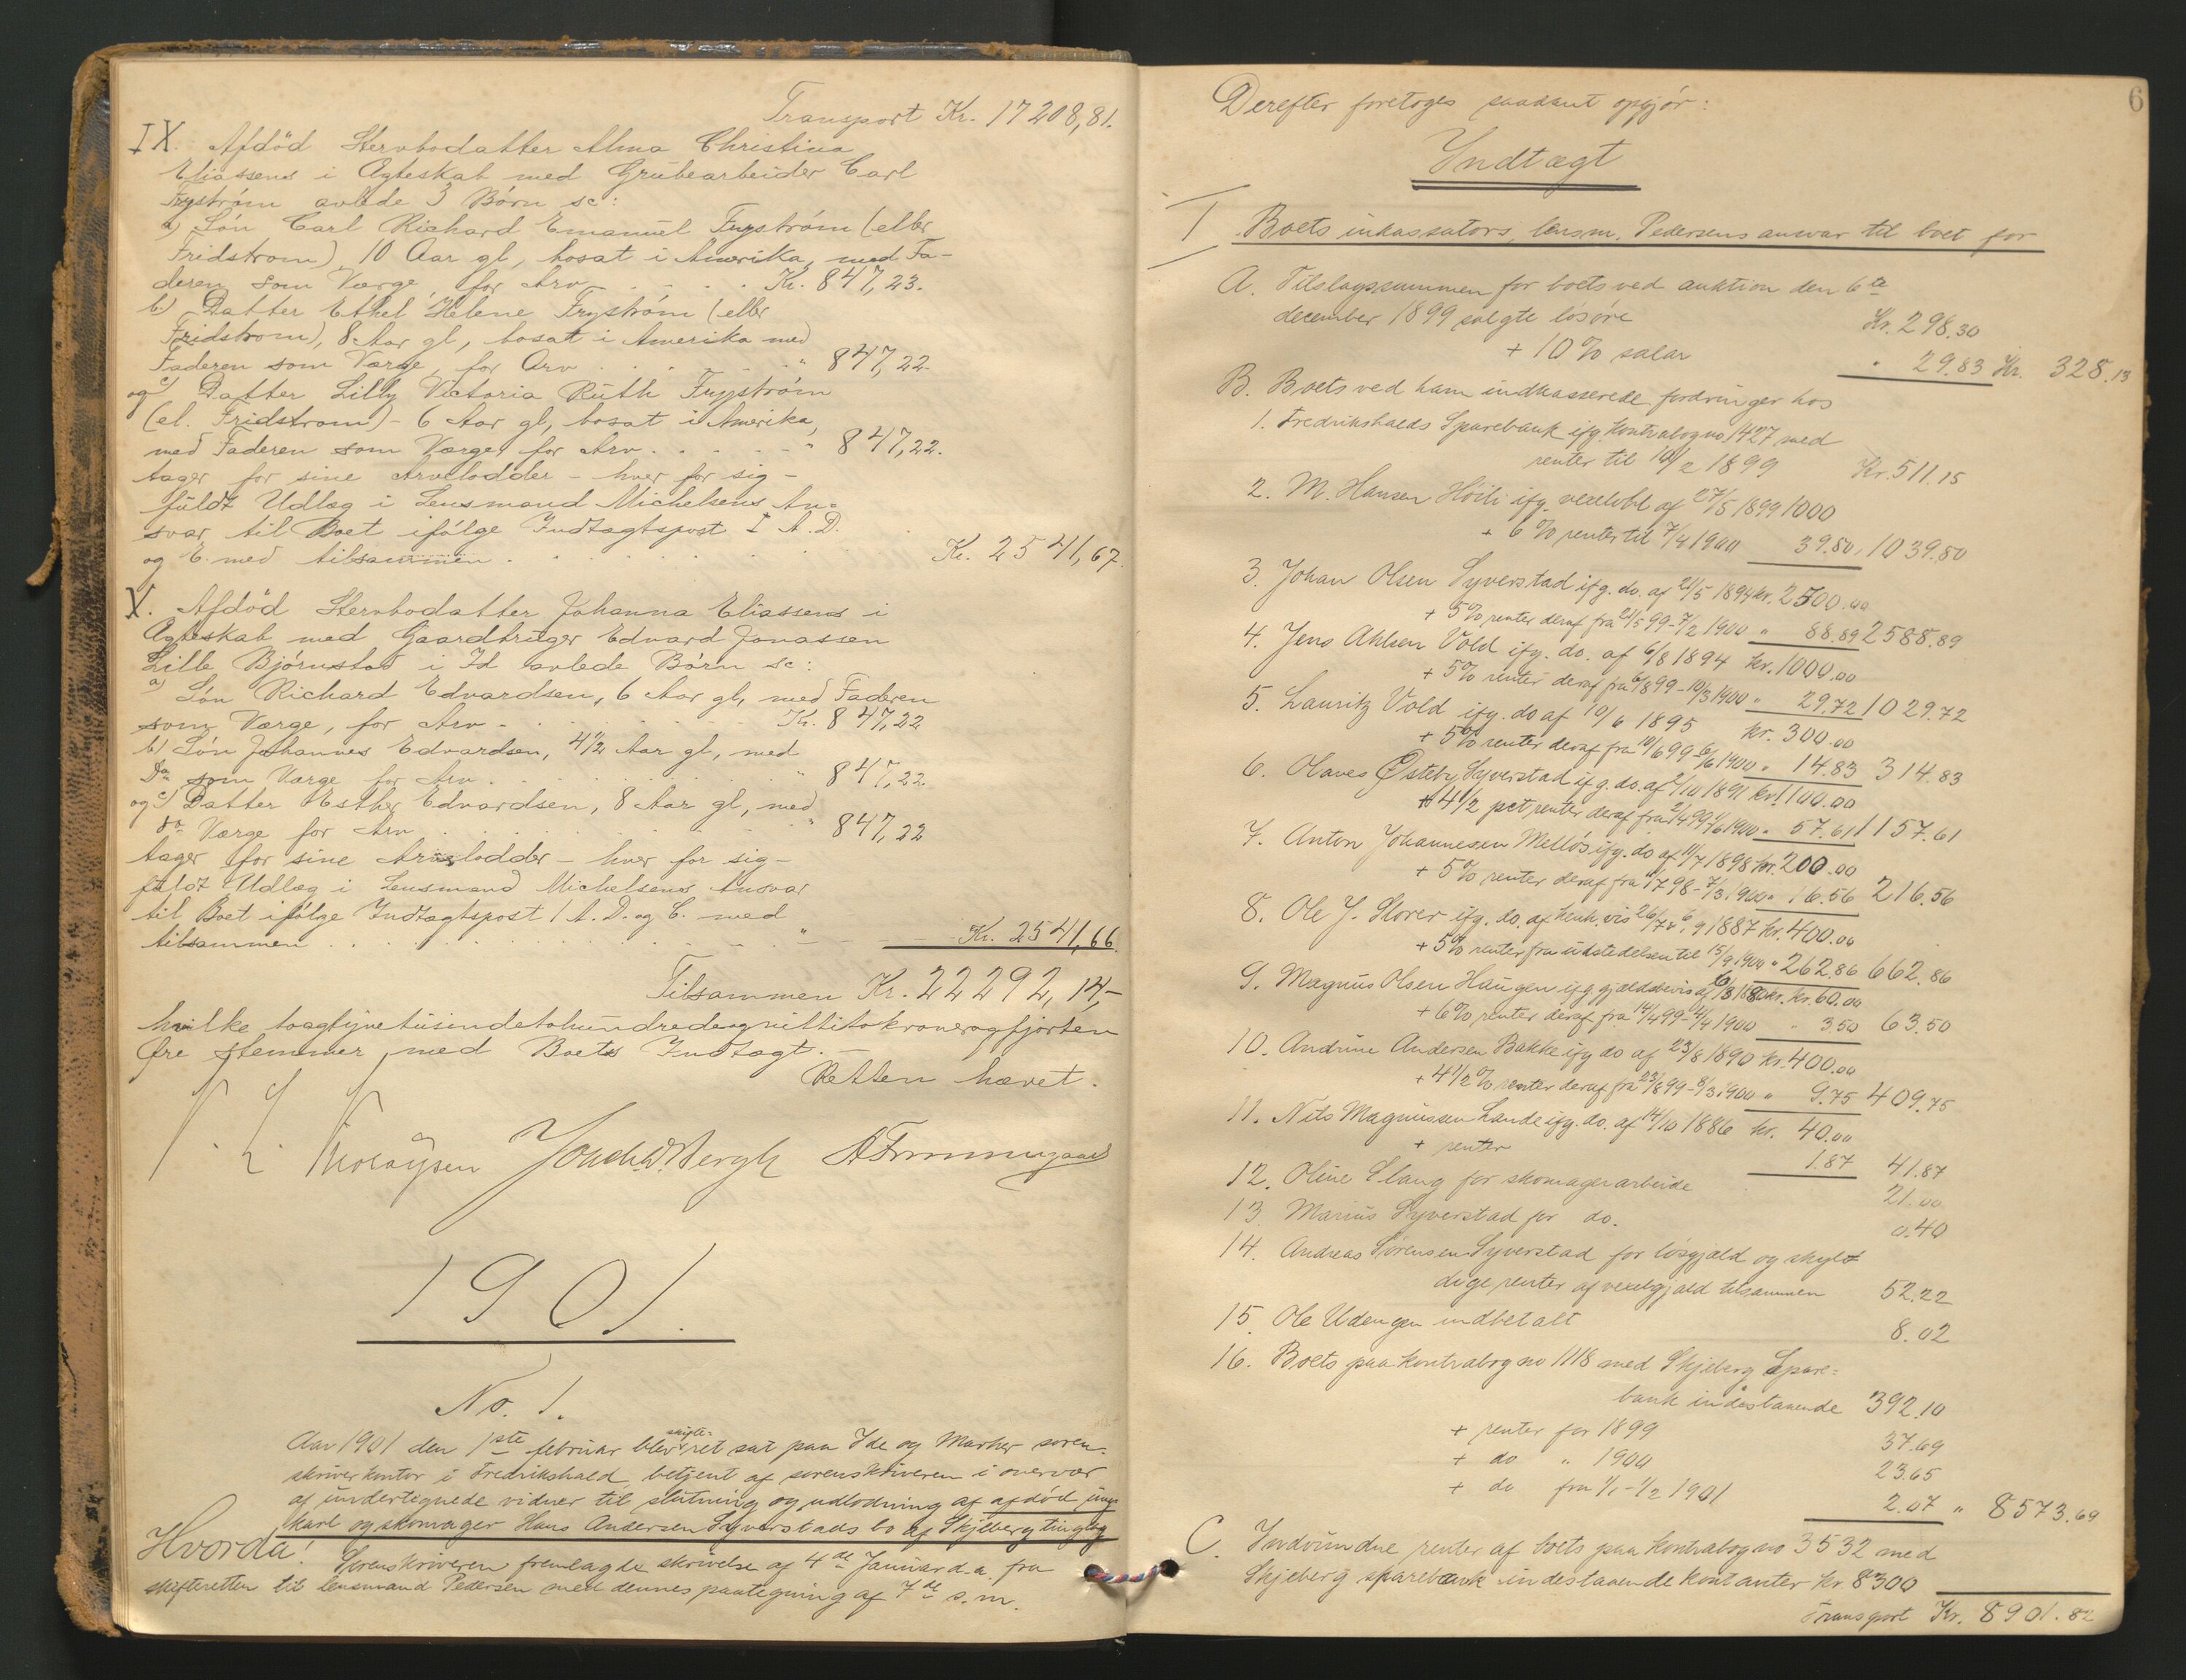 Transport Kr. 17208,81.
IX. Afdöd Stervbodatter Alma Christina
Eliassens i Ægteskab med Grubearbeider Carl
Fryström avlede 3 Börn sc:
a) Sön Carl Richard Emanuel Frystrom (eller
Fridstrom), 10 Aar gl, bosat i Amerika, med Fa-
deren som Værge, for Arv . . . . Kr. 847,23.
b) Datter Ethel Helene Frystrom (eller
Fridstrom), 8 Aar gl, bosat i Amerika med
Faderen som Værge, for Arv . . . . " 847,22.
og c) Datter Lilly Victoria Ruth Frystrom
(el. Fridstrom) - 6 Aar gl, bosat i Amerika,
med Faderen som Værge, for Arv . . . . " 847,22.
tager for sine Arvelodder - hver for sig -
fuldt Udlæg i Lensmand Michelsens An-
svar til Boet ifölge Indtægtspost I A. D.
og E. med tilsammen . . . . Kr. 2541,67.
X. Afdöd Stervbodatter Johanna Eliassens i
Ægteskab med Gaardbruger Edvard Jonassen
Lille Björnstad i Id avlede Börn sc:
a) Sön Richard Edvardsen, 6 Aar gl, med Faderen
som Værge, for Arv . . . . Kr. 847,22
b) Sön Johannes Edvardsen, 4½ Aar gl, med
Do som Værge for Arv . . . . " 847,22.
og c) Datter Esther Edvardsen, 8 Aar gl, med
do Værge for Arv . . . . " 847,22
tager for sine Arvelodder - hver for sig -
fuldt Udlæg i Lensmand Michelsens Ansvar
til Boet ifölge Indtægtspost I A. D. og C. med
tilsammen . . . . " Kr. 2541,66.
Tilsammen Kr. 22292,14,-
hvilke toogtyvetusindetohundredeognittitokronerogfjorten
Øre stemmer med Boets Indtægt. -
Retten hævet.
1901.
No. 1.
Aar 1901 den 1ste februar blev skifte-ret sat paa Ide og Marker soren-
skriverkontor i Fredrikshald, betjent af sorenskriveren i overvær
af undertegnede vidner til slutning og udlodning af afdöd ung-
karl og skomager Hans Andersen Syverstads bo af Skjeberg tinglag
Hvorda!
Sorenskriveren fremlagde skrivelse af 4de Januar d.a. fra
skifteretten til lensmand Pedersen med dennes paategning af 7de s.m.
6
Derefter foretoges saadant opgjör:
Indtægt
I Boets inkassators, lensm. Pedersens ansvar til boet for
A. Tilslagssummen for boets ved auktion den 6te
december 1899 solgte lösöre Kr. 298.30
+ 10% salær " 29.83 Kr. 328.13
B. Boets ved ham indkasserede fordringer hos
1. Fredrikshalds Sparebank ifg. kontrabog no 1427 med
renter til 10/2 1899 Kr. 511.15
2. M. Hansen Höili ifg. vexelobl af 27/5 1899 1000
+ 6% renter til 7/4 1900 39.80, 1039.80
3. Johan Olsen Syverstad ifg. do. af 21/5 1894 kr. 2500.00
+ 5% renter deraf fra 21/5 99-7/2 1900 " 88.89 2588.89
4. Jens Ahlsen Vold ifg. do. af 6/8 1894 kr. 1000.00
+ 5% renter deraf fra 6/8 99-10/3 1900 " 29.72 1029.72
5. Lauritz Vold ifg. do af 10/6 1895 kr. 300.00
+ 5% renter deraf fra 10/6 99-6/6 1900 " 14.83 314.83
6. Olaves Østeby Syverstad ifg. do. af 2/10 1891 kr. 1100.00
+ 4½ pct renter deraf fra 2/4 99 1/6 1900 " 57.61 1157.61
7. Anton Johannesen Mellös ifg. do af 11/7 1898 kr. 200.00
+ 5% renter deraf fra 11/7 98-7/3 1900 " 16.56 216.56
8. Ole J. Storer ifg. do. af henh.vis 26/7 & 6/9 1887 kr. 400.00
+ 5% renter fra udstedelsen til 15/9 1900 " 262.86 662.86
9. Magnus Olsen Haugen ifg. gjældsbevis af 6/3 1880 kr. 60.00
+ 6% renter deraf fra 14/4 99-4/4 1900 " 3.50 63.50
10. Andrine Andersen Bakke ifg do af 23/8 1890 kr. 400.00
+ 4½% renter deraf fra 23/8 99-8/3 1900 " 9.75 409.75
11. Nils Magnussen Lande ifg. do. af 14/10 1886 kr. 40.00
+ renter 1.87 41.87
12. Oline Slang for skomagerarbeide 21.00
13 Marius Syverstad for do. 0.40
14. Andreas Sörensen Syverstad for lösgjæld og skyl-
dige renter af vexelgjæld tilsammen 52.22
15. Ole Udengen indbetalt 8.02
16. Boets paa kontrabog no 1118 med Skjeberg Spare-
bank indestaaende 392.10
+ renter for 1899 37.69
+ do " 1900 23.65
+ do fra 1/1-1/2 1901 2.07 " 8573.69
C. Indvundne renter af boets paa kontrabog no 3532 med
Skjeberg sparebank indestaaende kontanter kr 8300
Transport Kr. 8901.82